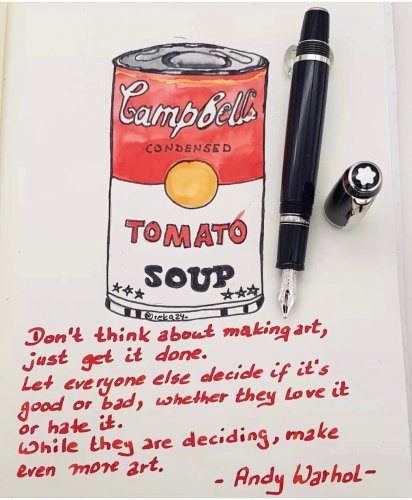 Campbell's
CONDENSED
TOMATO
SOUP
@reka24-
Don't think about making art,
just get it done.
Let everyone else decide if it's
good or bad, whether they love it
or hate it.
While they are deciding, make
even more art.
- Andy Warhol -